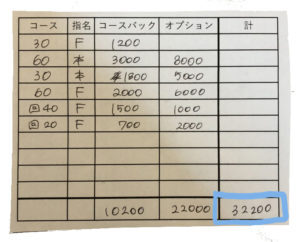 コース 指名 コースバック オプション 計
30 F 1200
60 本 3000 8000
30 本 1800 5000
60 F 2000 6000
回40 F 1500 1000
回20 F 700 2000
10200 22000 32200